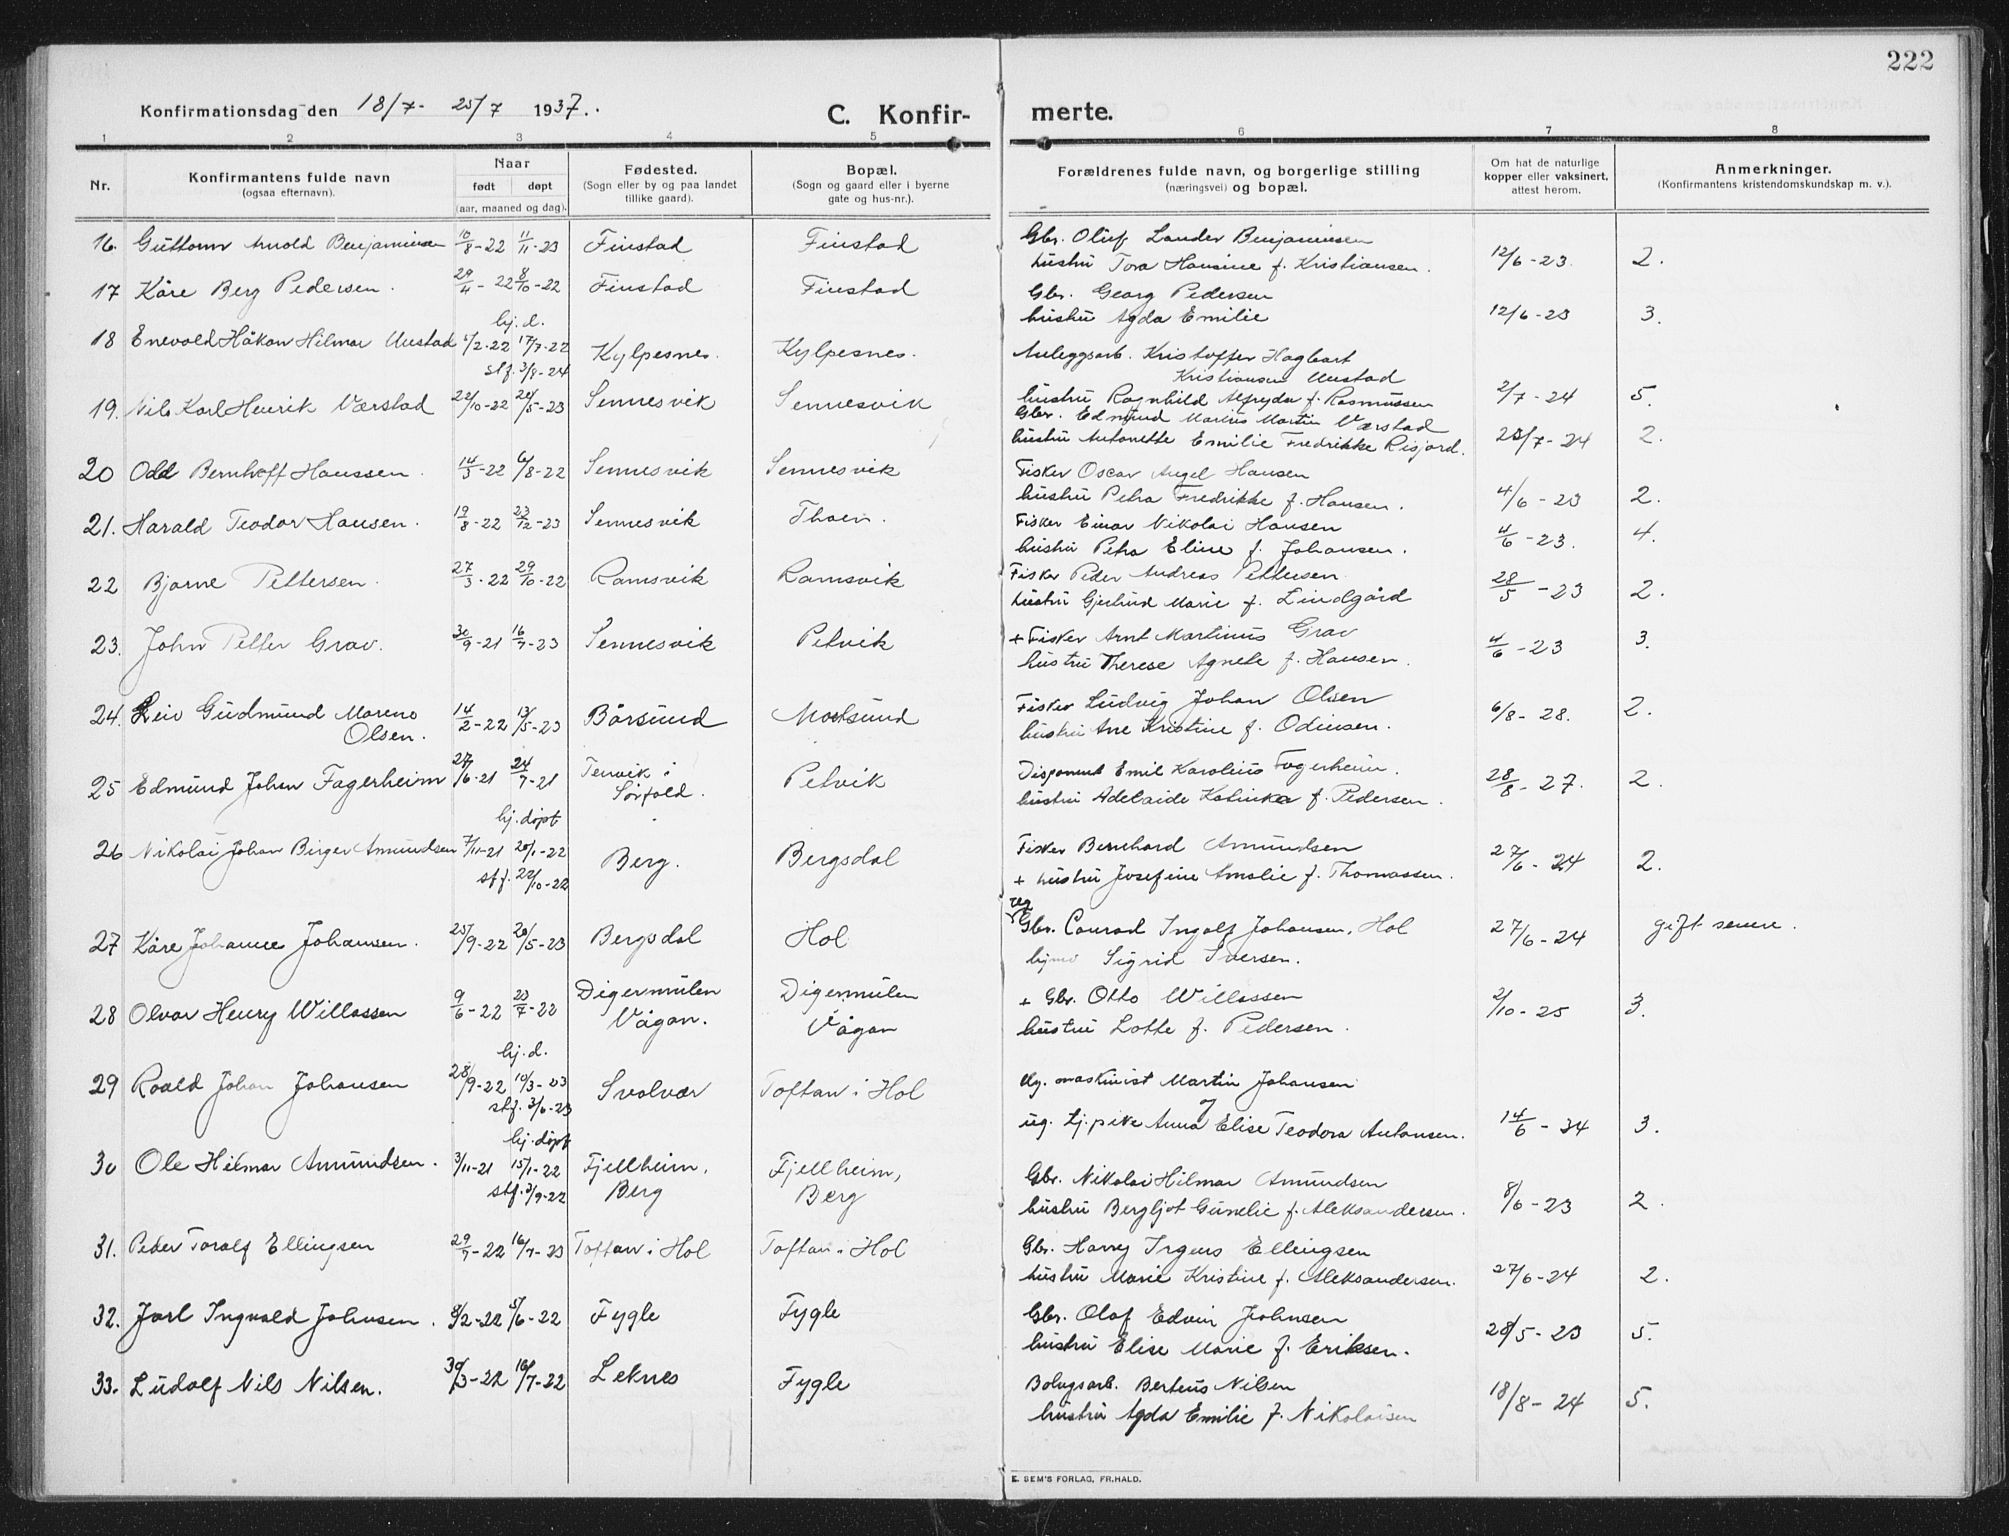 222
Konfirmationsdag den 18/7 - 25/7 1937.
C. Konfir- merte.
1 2 3 4 5 6 7 8
Nr.
Konfirmantens fulde navn
(ogsaa efternavn).
Naar
født døpt
(aar, maaned og dag).
Fødested.
(Sogn eller by og paa landet
tillike gaard).
Bopæl.
(Sogn og gaard eller i byerne
gate og hus-nr.).
Forældrenes fulde navn, og borgerlige stilling
(næringsvei) og bopæl.
Om hat de naturlige
kopper eller vaksinert,
attest herom.
Anmerkninger.
(Konfirmantens kristendomskundskap m. v.).
16. Guttorm Arnold Benjaminsen 10/8-22 11/11-23 Finstad Finstad Gbr. Oluf Lander Benjaminsen
hustru Tora Hansine f. Kristiansen. 12/6-23. 2.
17 Kåre Berg Pedersen. 29/4-22 8/10-22 Finstad Finstad Gbr. Georg Pedersen
hustru Agda Emilie 12/6-23 3.
hj. d.
18 Enevold Håkon Hilmar Unstad 1/2-22 17/7-22 Kylpesnes. Kylpesnes. Anleggsarb. Kristoffer Hagbart
stf. 3/8-24 Kristiansen Unstad
hustru Ragnhild Alfryda f. Rasmussen 2/7-24 5.
19. Nils Karl Henrik Værstad 22/10-22 24/5-23 Sennesvik Sennesvik Gbr. Edmund Marius Martin Værstad
hustru Antonette Emilie Fredrikke Risjord. 23/7-24 2.
20 Odd Bernhoff Hanssen. 14/3-22 6/8-22 Sennesvik Sennesvik Fisker Oscar Angel Hansen
hustru Petra Fredrikke f. Hansen. 4/6-23 2.
21. Harald Teodor Hansen. 19/8-22 23/12-23 Sennesvik Thoen. Fisker Einar Nikolai Hansen
hustru Petra Eline f. Johansen. 4/6-23. 4.
22 Bjarne Pettersen. 27/3-22 29/10-22 Ramsvik Ramsvik Fisker Peder Andreas Pettersen.
hustru Gjertrud Marie f. Lindgård 28/5-23 2.
23. John Petter Grav. 30/9-21 16/7-23 Sennesvik Petvik + Fisker Arnt Martinus Grav
hustru Therese Agnete f. Hansen. 4/6-23 3.
24. Leiv Gudmund Mareno 14/2-22 13/5-23 Bårsund Mortsund Fisker Ludvig Johan Olsen
Olsen. hustru Ane Kristine f. Odinsen. 6/8-28. 2.
25 Edmund Johan Fagerheim 27/6-21 24/7-21 Tenvik i Petvik Disponent Emil Karolius Fagerheim.
Sørfold. hustru Adelaide Katinka f. Pedersen. 28/8-27. 2.
hj. døpt
26 Nikolai Johan Birger Amundsen 7/11-21 20/1-22 Berg. Bergsdal Fisker Bernhard Amundsen
stf. 22/10-22 + hustru Josefine Amalie f. Thomassen. 27/6-24 2.
27 Kåre Johanne Johansen. 25/9-22 20/5-23 Bergsdal Hol Gbr. Conrad Ingolf Johansen, Hol
Sigrid Iversen. 27/6-24 gift senere.
28 Olvar Henry Willassen 9/6-22 23/7-22 Digermulen Digermulen + Gbr. Otto Willassen
Vågan. Vågan hustru Lotte f. Pedersen. 2/10-25 3.
hj. d.
29 Roald Johan Johansen 28/9-22 10/3-23 Svolvær Toftan i Hol Ug. maskinist Martin Johansen
stf. 3/6-23 og
ug. tj. pike Anna Elise Teodora Antonsen. 14/6-34 3.
hj. døpt
30 Ole Hilmar Amundsen. 3/11-21 15/1-22 Fjellheim, Fjellheim, Gbr. Nikolai Hilmar Amundsen
stf. 3/9-22 Berg Berg hustru Bergljot Gunelie f. Aleksandersen. 8/6-23 2.
31. Peder Toralf Ellingsen 29/7-22 16/7-23 Toftan i Hol Toftan i Hol Gbr. Harry Irgens Ellingsen
hustru Marie Kristine f. Aleksandersen. 27/6-24 2.
32. Jarl Ingvald Johnsen. 8/2-22 5/6-22 Fygle Fygle Gbr. Olaf Edvin Johnsen
hustru Elise Marie f. Eriksen. 28/5-23 5.
33. Ludolf Nils Nilsen. 30/3-22 16/7-22 Leknes Fygle Bolugsarb. Berteus Nilsen
hustru Agda Emilie f. Nikolaisen 18/8-24 5.
E. SEM'S FORLAG, FR.HALD.